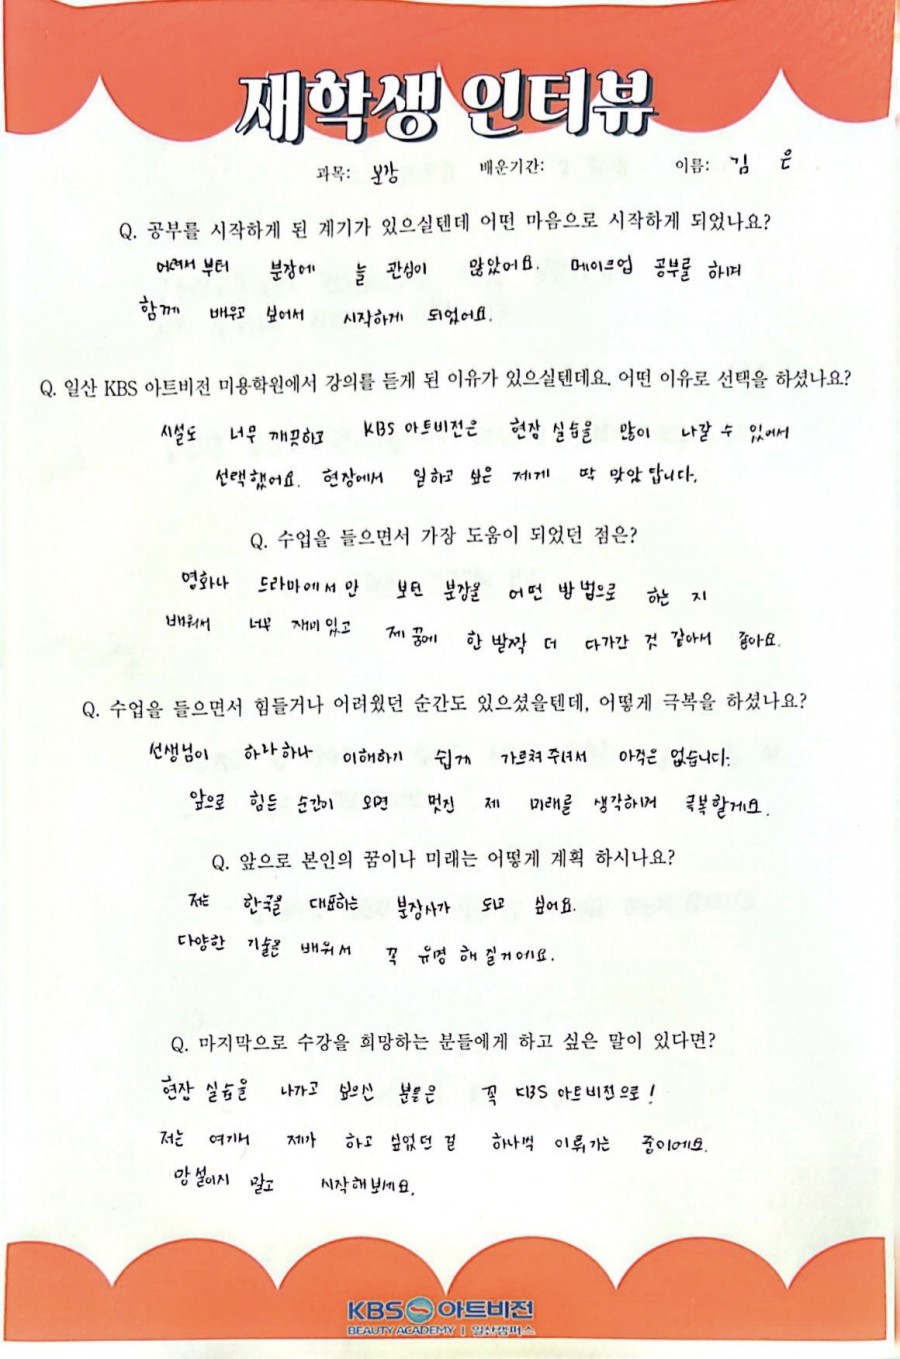 재학생 인터뷰
과목: 분장 배운기간: 이름: 김 은
Q. 공부를 시작하게 된 계기가 있으실텐데 어떤 마음으로 시작하게 되었나요?
어려서부터 분장에 늘 관심이 많았어요. 메이크업 공부를 하며
함께 배우고 싶어서 시작하게 되었어요.
Q. 일산 KBS 아트비전 미용학원에서 강의를 듣게 된 이유가 있으실텐데요. 어떤 이유로 선택을 하셨나요?
시설도 너무 깨끗하고 KBS 아트비전은 현장 실습을 많이 나갈 수 있어서
선택했어요. 현장에서 일하고 싶은 제게 딱 맞았답니다.
Q. 수업을 들으면서 가장 도움이 되었던 점은?
영화나 드라마에서만 보던 분장을 어떤 방법으로 하는 지
배워서 너무 재미있고 제 꿈에 한 발짝 더 다가간 것 같아서 좋아요.
Q. 수업을 들으면서 힘들거나 어려웠던 순간도 있으셨을텐데, 어떻게 극복을 하셨나요?
선생님이 하나하나 이해하기 쉽게 가르쳐주셔서 아직은 없습니다.
앞으로 힘든 순간이 오면 멋진 제 미래를 생각하며 극복할게요.
Q. 앞으로 본인의 꿈이나 미래는 어떻게 계획 하시나요?
저는 한국을 대표하는 분장사가 되고 싶어요.
다양한 기술을 배워서 꼭 유명해질거에요.
Q. 마지막으로 수강을 희망하는 분들에게 하고 싶은 말이 있다면?
현장 실습을 나가고 싶으신 분들은 꼭 KBS 아트비전으로!
저는 여기서 제가 하고 싶었던 걸 하나씩 이뤄가는 중이에요.
망설이지 말고 시작해보세요.
KBS 아트비전
BEAUTY ACADEMY | 일산캠퍼스